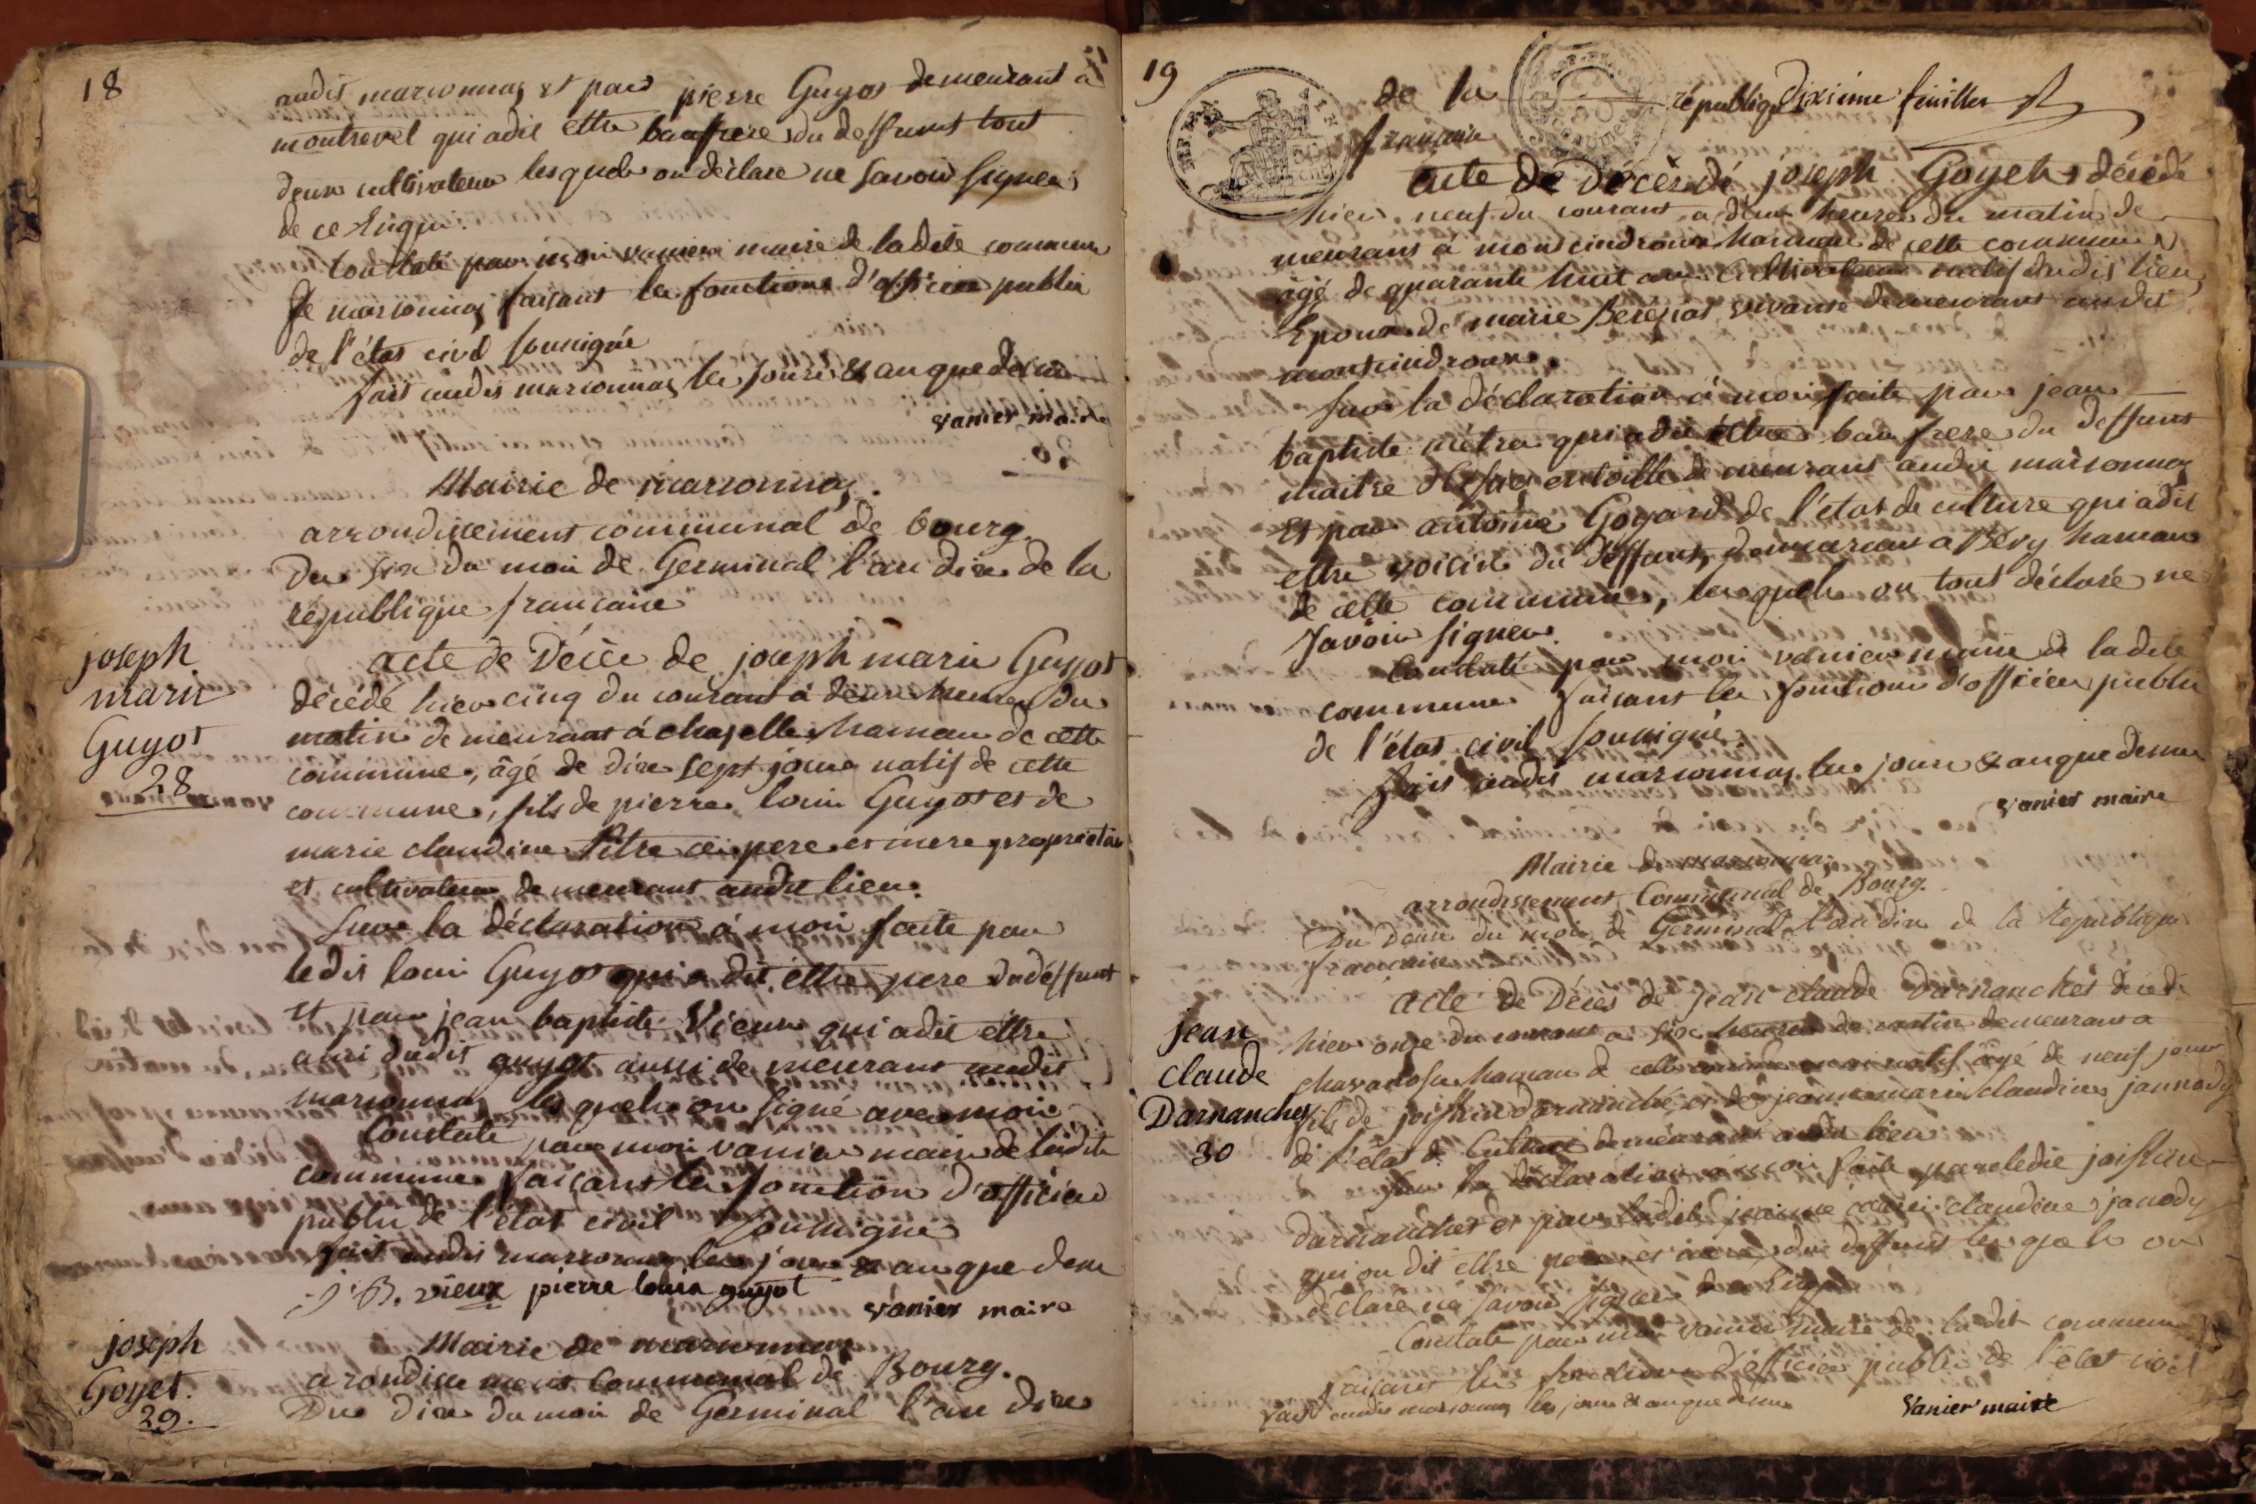 18
audit marsonnas et par pierre Guyot demeurant a
montrevel qui a dit ettre baufrere du deffunt tout
deux cultivateur lesquels on déclaré ne savoir signer
de ce Enquis.
Constaté par moi vanier maire de ladite commune
de marsonnas faisant les fonctions d'officier public
de l'état civil soussigné
fait audit marsonnas les jours & an que dessus
vanier maire
Mairie de marsonnas.
arrondissement communal de bourg.
Du six du moi de Germinal l'an dix de la
république francaise
joseph
marie
Guyot
28
acte de Décès de joseph marie Guyot
décédé hier cinq du courant à deux heures du
matin demeurant à chapelle hamau de cette
commune, âgé de dix sept jours natif de cette
commune, fils de pierre louis Guyot et de
marie claudine ces pere et mere propriétaire
et cultivateur demeurant audit lieu.
Sur la déclaration à moi faite par
ledit louis Guyot qui a dit ettre pere du déffunt
et par jean baptiste Vieux qui a dit ettre
ami dudit guyot aussi demeurant audit
marsonnas lesquels on signé avec moi
Constaté par moi vanier maire de ladite
commune faisant les fonction d'officier
public de l'état civil soussigné
fait audit marsonnas les jours & an que dessus
J. B. vieux pierre louis guyot
vanier maire
joseph
Goyet.
29.
Mairie de marsonnas
arondissement communal de Bourg.
Du dix du moi de Germinal l'an dix
19
de la république dixième feuillet
francaise
acte de Décès de joseph Goyet décédé
hier neuf du courant a deux heures du matin de
meurant a montcindroux hamau de cette commune
âgé de quarante huit ans cultivateur natif dudit lieu
Epoux de marie vivante demeurant audit
montcindroux.
sur la déclaration à moi faite par jean
baptiste métra qui a dit ettre bau frere du deffunt
maitre demeurant audit marsonnas
et par antoine Goyard de l'état de culture qui a dit
ettre voicin du deffunt, demeurant a Bévy hamau
de cette commune, lesquels on tout déclaré ne
savoir signer.
Constaté par moi vanier maire de ladite
commune faisant les fonctions d'officier public
de l'état civil soussigné
fait audit marsonnas les jours & an que dessus
vanier maire
Mairie de marsonnas
arrondissement Communal de Bourg.
Du douze du mois de Germinal l'an dix de la République
francaise
jean
claude
Darnanches
30
acte de Décès de jean claude Darnanches décédé
hier onze du courant a six heures du matin demeurant a
hamau de cette commune natif âgé de neuf jours
fils de Darnanche et de jeanne marie claudine jannody
de l'état de Culture demeurant audit lieu
sur la déclaration à moi faite par ledit
darnanches et par ladite jeanne marie claudine janody
qui on dit ettre pere et mere du deffunt lesquels on
déclaré ne savoir signer
Constaté par moi vanier maire de la dit commune
faisant les fonctions d'officier public de l'état civil
fait audit marsonnas les jours & an que dessus
Vanier maire